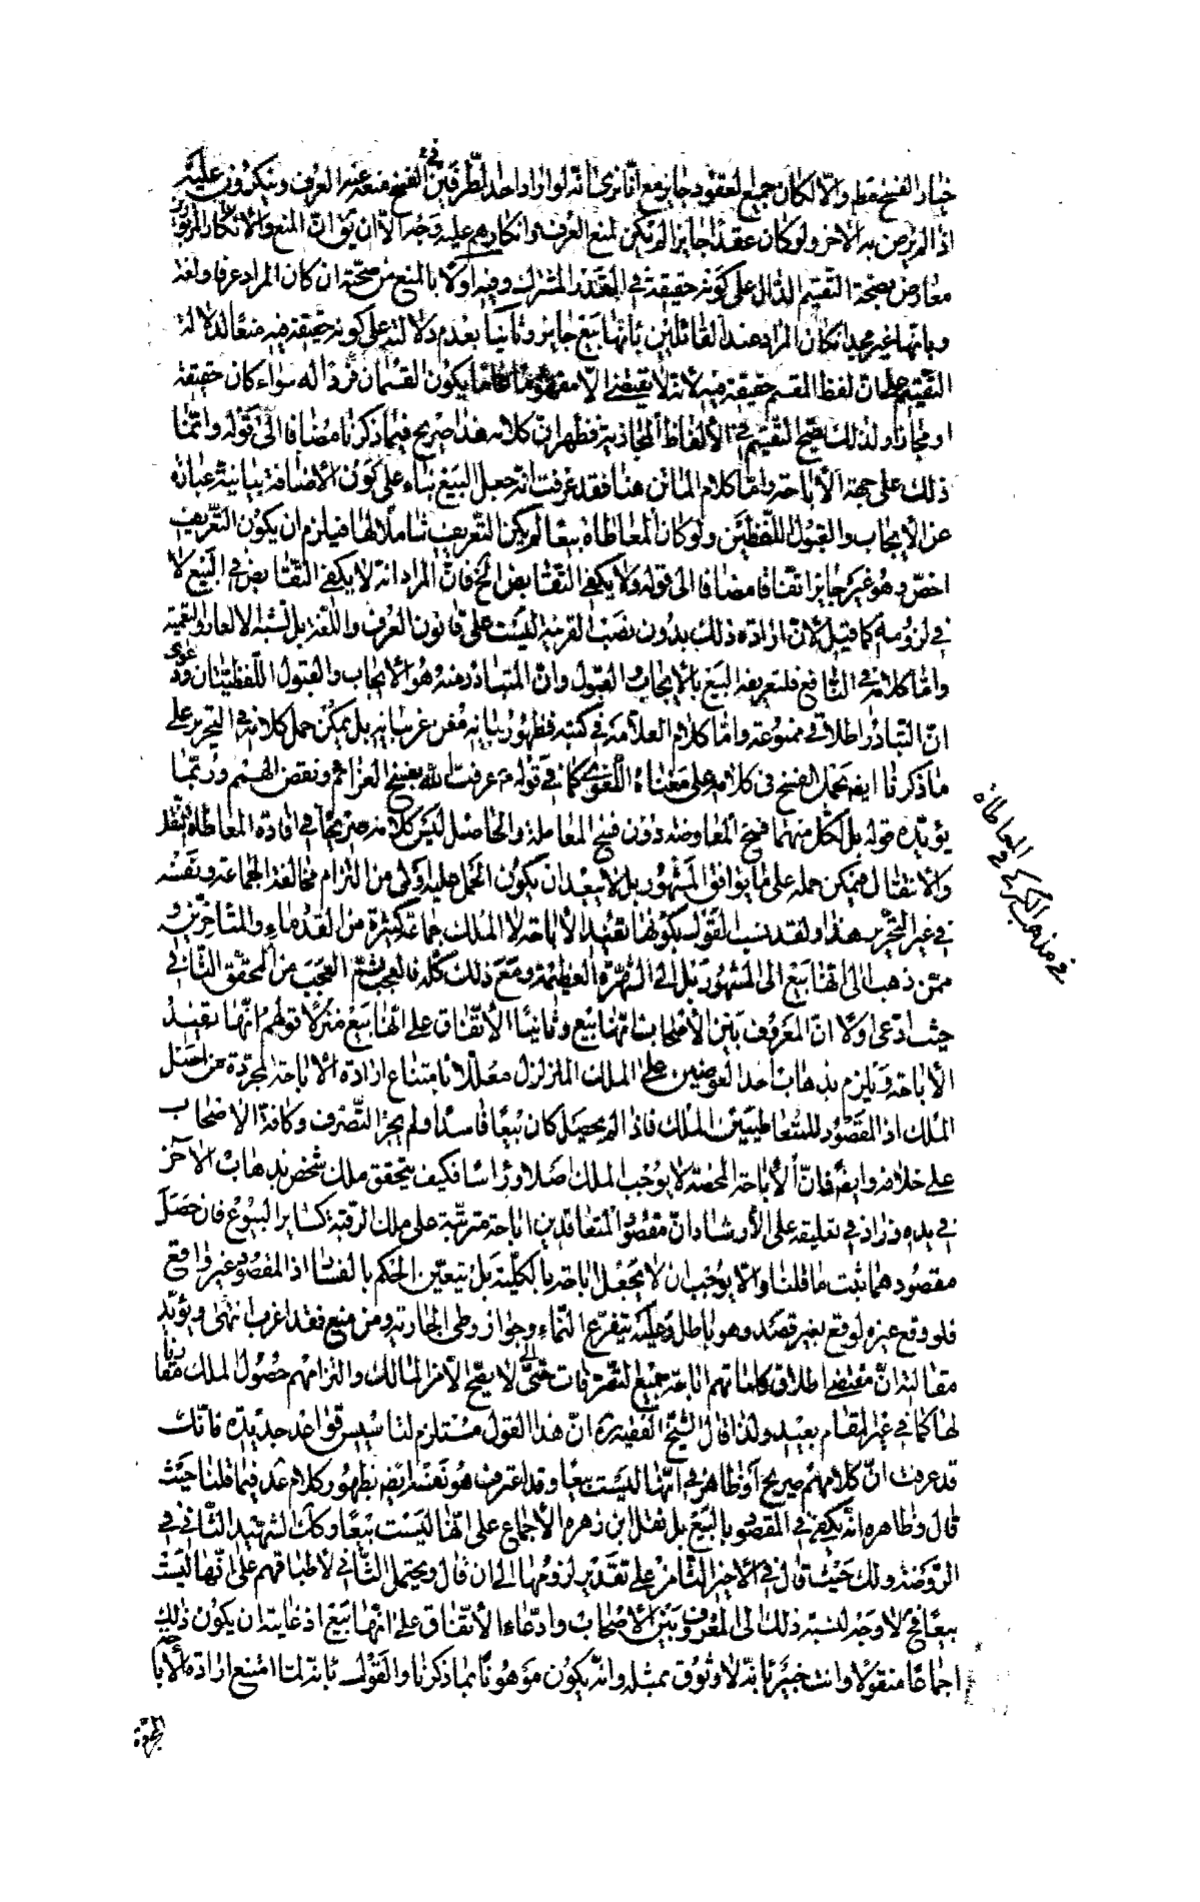 خيار الفسخ فقط والّا لكان جميع العقود جايز مع انّا نرى انّه لو اراد احد الطّرفين الفسخ منعه عنه العرف وينكرون عليه
اذا لم يرض به الاخر ولو كان عقدا جايزا لم يكن لمنع العرف وانكارهم عليه وجه الّا ان يق انّ المنع والانكار المزبور
معارض بصحّة التّقسيم الدّال على كونه حقيقة في القدر المشترك وفيه اوّلا بالمنع من صحّته ان كان المراد عرفا ولغة
وبانّها غير مجد ان كان المراد عند القائلين بانّها بيع جايز وثانيا بعدم دلالته على كونه حقيقة فيه منعا لدلالة
التّقسيم على انّ لفظ المقسم حقيقة فيه لانّه لا يقتضى الّا مفهوما عامّا يكون القسمان فردا له سواء كان حقيقة
او مجازا ولذلك يصحّ التّقسيم في الالفاظ المجازية فظهر انّ كلامه هذا صريح فيما ذكرنا مضافا الى قوله وانّما
ذلك على جهة الاباحة وامّا كلام الماتن هنا فقد عرفت انّه جعل البيع بناء على كون الاضافة بيانيّة عبارة
عن الايجاب والقبول اللّفظيّين ولو كان المعاطاة بيعا لم يكن التّعريف شاملا لها فيلزم ان يكون التّعريف
اخصّ وهو غير جايز اتّفاقا مضافا الى قوله ولا يكفى التّقابض الخ فانّ المراد انّه لا يكفى التّقابض في البيع لا
في لزومه كما قيل لانّ ارادة ذلك بدون نصب القرينة ليست على قانون العرف واللّغة بل تشبه الالغاز والتّعمية
وامّا كلامه في النّافع فلتعريفه البيع بالايجاب والقبول وانّ المتبادر منه هو الايجاب والقبول اللّفظيّتان ودعوى
انّ التّبادر اطلاقي ممنوعة وامّا كلام العلّامة في كتبه فظهور بيانه مغن عن بيانه بل يمكن حمل كلامه في التّحرير على
ما ذكرنا ايض بحمل الفسخ في كلامه على معناه اللّغوي كما في قوله ع عرفت الله بفسخ العزائم ونقض الهمم وربّما
يؤيّده قوله بل لكلّ منهما فسخ المعاوضة دون فسخ المعاملة والحاصل ليس كلامه صريحا في افادة المعاطاة للنّقل
والانتقال فيمكن حمله على ما يوافق المشهور بل لا يبعد ان يكون الحمل عليه اولى من التزام مخالفة الجماعة ونفسه
في غير التّحرير هذا ولقد نسب القول بكونها تفيد الاباحة لا الملك جماعة كثيرة من القدماء والمتاخّرين و
ممّن ذهب الى انّها بيع الى المشهور بل الى الشّهرة العظيمة ومع ذلك كلّه فالعجب ثمّ العجب من المحقّق الثّاني
حيث ادّعى اوّلا انّ المعروف بين الاصحاب انّها بيع وثانيا الاتّفاق على انّها بيع منزّلا قولهم انّها تفيد
الاباحة ويلزم بذهاب احد العوضين على الملك المتزلزل معلّلا بامتناع ارادة الاباحة المجرّدة عن اصل
الملك اذ المقصود للمتعاطيين الملك فاذا لم يحصل كان بيعا فاسدا ولم يجز التّصرف وكافة الاصحاب
على خلافه وايض فانّ الاباحة المحضة لا يوجب الملك اصلا وراسا فكيف يتحقّق ملك شخص بذهاب الاخر
في يده وزاد في تعليقه على الارشاد انّ مقصود المتعاقدين اباحة مترتّبة على ملك الرّقبة كساير البيوع فان حصل
مقصودهما ثبت ما قلنا والّا يوجب ان لا يحصل اباحة بالكلّية بل يتعيّن الحكم بالفساد اذ المقصود غير واقع
فلو وقع غيره لوقع بغير قصد وهو باطل وعليه يتفرّع النّماء وجواز وطى الجارية ومن منع فقد اغرب انتهى ويؤيّد
مقالته انّ مقتضى اطلاق كلماتهم اباحة جميع التّصرّفات حتّى الّتى لا يصحّ الّا من المالك والتزامهم حصول الملك مقارنا
لها كما في غير المقام بعيد ولذا قال الشّيخ الفقيه ره انّ هذا القول مستلزم لتاسيس قواعد جديدة فانّك
قد عرفت انّ كلامهم صريح او ظاهر في انّها ليست بيعا وقد اعترف هو نفسه ايض بظهور كلام عد فيما قلنا حيث
قال وظاهره انّه يكفى في المقصود بالبيع بل نقل ابن زهرة الاجماع على انّها ليست بيعا وكذا الشّهيد الثّاني في
الرّوضة وكك حيث قال في الاخير الثّامن على تقدير لزومها الى ان قال ويحتمل الثّاني لاطباقهم على انّها ليست
بيعا فح لا وجه لنسبة ذلك الى المعروف بين الاصحاب وادّعاء الاتّفاق على انّها بيع اذ غايته ان يكون ذلك
اجماعا منقولا وانت خبير بانّه لا وثوق بمثله وانّه يكون موهونا بما ذكرنا والقول بانّه لمّا امتنع ارادة الاباحة
المجرّدة
في مذهب الكركي في المعاطاة